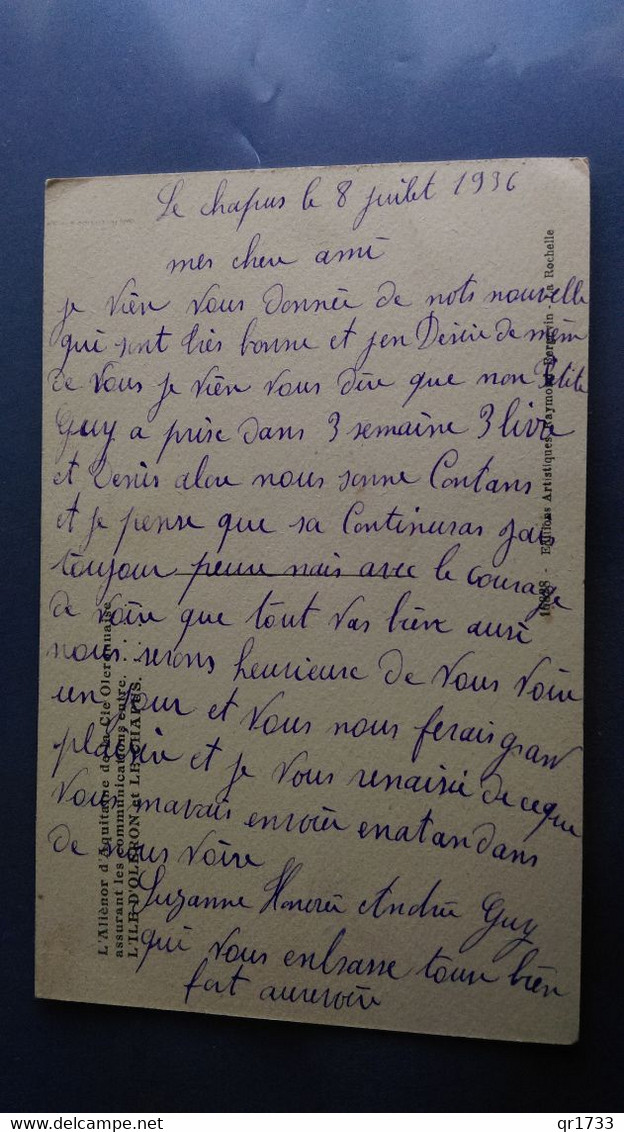 Le chapus le 8 juilet 1936
mes cheu ami
je viên vous donnée de nots nouvelle
qui sont très bonne et j'en Desire de mêm
de vous je viên vous dire que mon Petite
Guy a prise dans 3 semaine 3 livre
et Denis alou nous sonne Contans
et je pense que sa Continuras jai
toujour peure mais avec le courage
de voire que tout vas bière ausi
nous serons heurieuse de vous voire
un jour et vous nous ferais gran
plaisire et je vous renaisie de ceque
vous mavais envoiée enatandans
de vous voire
Suzanne Honorée Andrée Guy
qui vous enbrasse tousse bièn
fort aurevoire
L'Aliènor d'Aquitaine de la Cie Oleronnaise
assurant les communications entre. . . .
L'ILE D'OLERON et LE CHAPUS. . . .
Editions Artistiques Raymond Bergevin - La Rochelle
qr1733